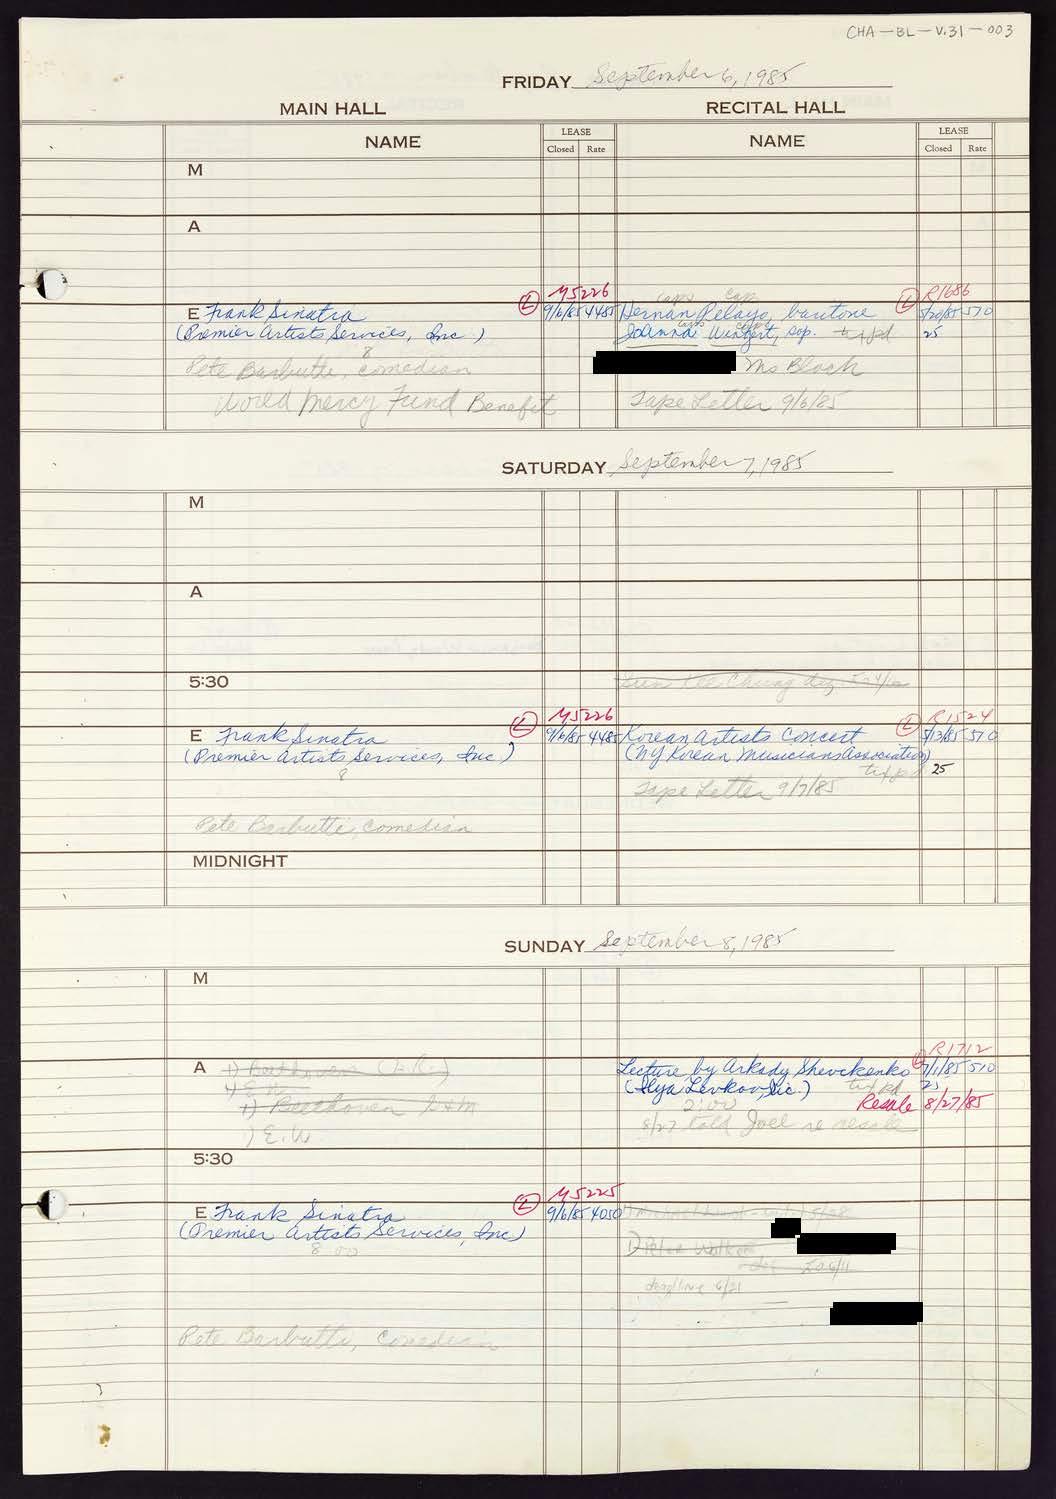 CHA-BL-V.31-003
FRIDAY September 6, 1985
MAIN HALL
RECITAL HALL
NAME
LEASE
Closed Rate
NAME
LEASE
Closed Rate
M
A
M5226
R1686
caps cap
E Frank Sinatra
L 9/6/85 4485
Hernan Pelayo, baritone
L 5/20/85 570
(Premier Artists Services, Inc.)
JoAnna Wingert, sop. tix pd
25
8
Pete Barbutti, comedian
Ms Block
World Mercy Fund Benefit
Tape Letter 9/6/85
SATURDAY September 7, 1985
M
A
5:30
M5226
R1524
E Frank Sinatra
L 9/6/85 4485
Korean Artists Concert
L 5/13/85 570
(Premier Artists Services, Inc.)
(NY Korean Musicians Association)
8
tix pd 25
Tape Letter 9/7/85
Pete Barbutti, comedian
MIDNIGHT
SUNDAY September 8, 1985
M
R1712
A 1) Beethoven
Lecture by Arkady Shevchenko
L 7/1/85 510
(Ilya Levkov, Lic.) tix pd
25
1) Beethoven
2:00
Resale 8/27/85
) E.W.
8/27 told Joel re resale
5:30
M5225
E Frank Sinatra
L 9/6/85 4050
(Premier Artists Services, Inc)
8 00
deadline 6/21
Pete Barbutti, comedian